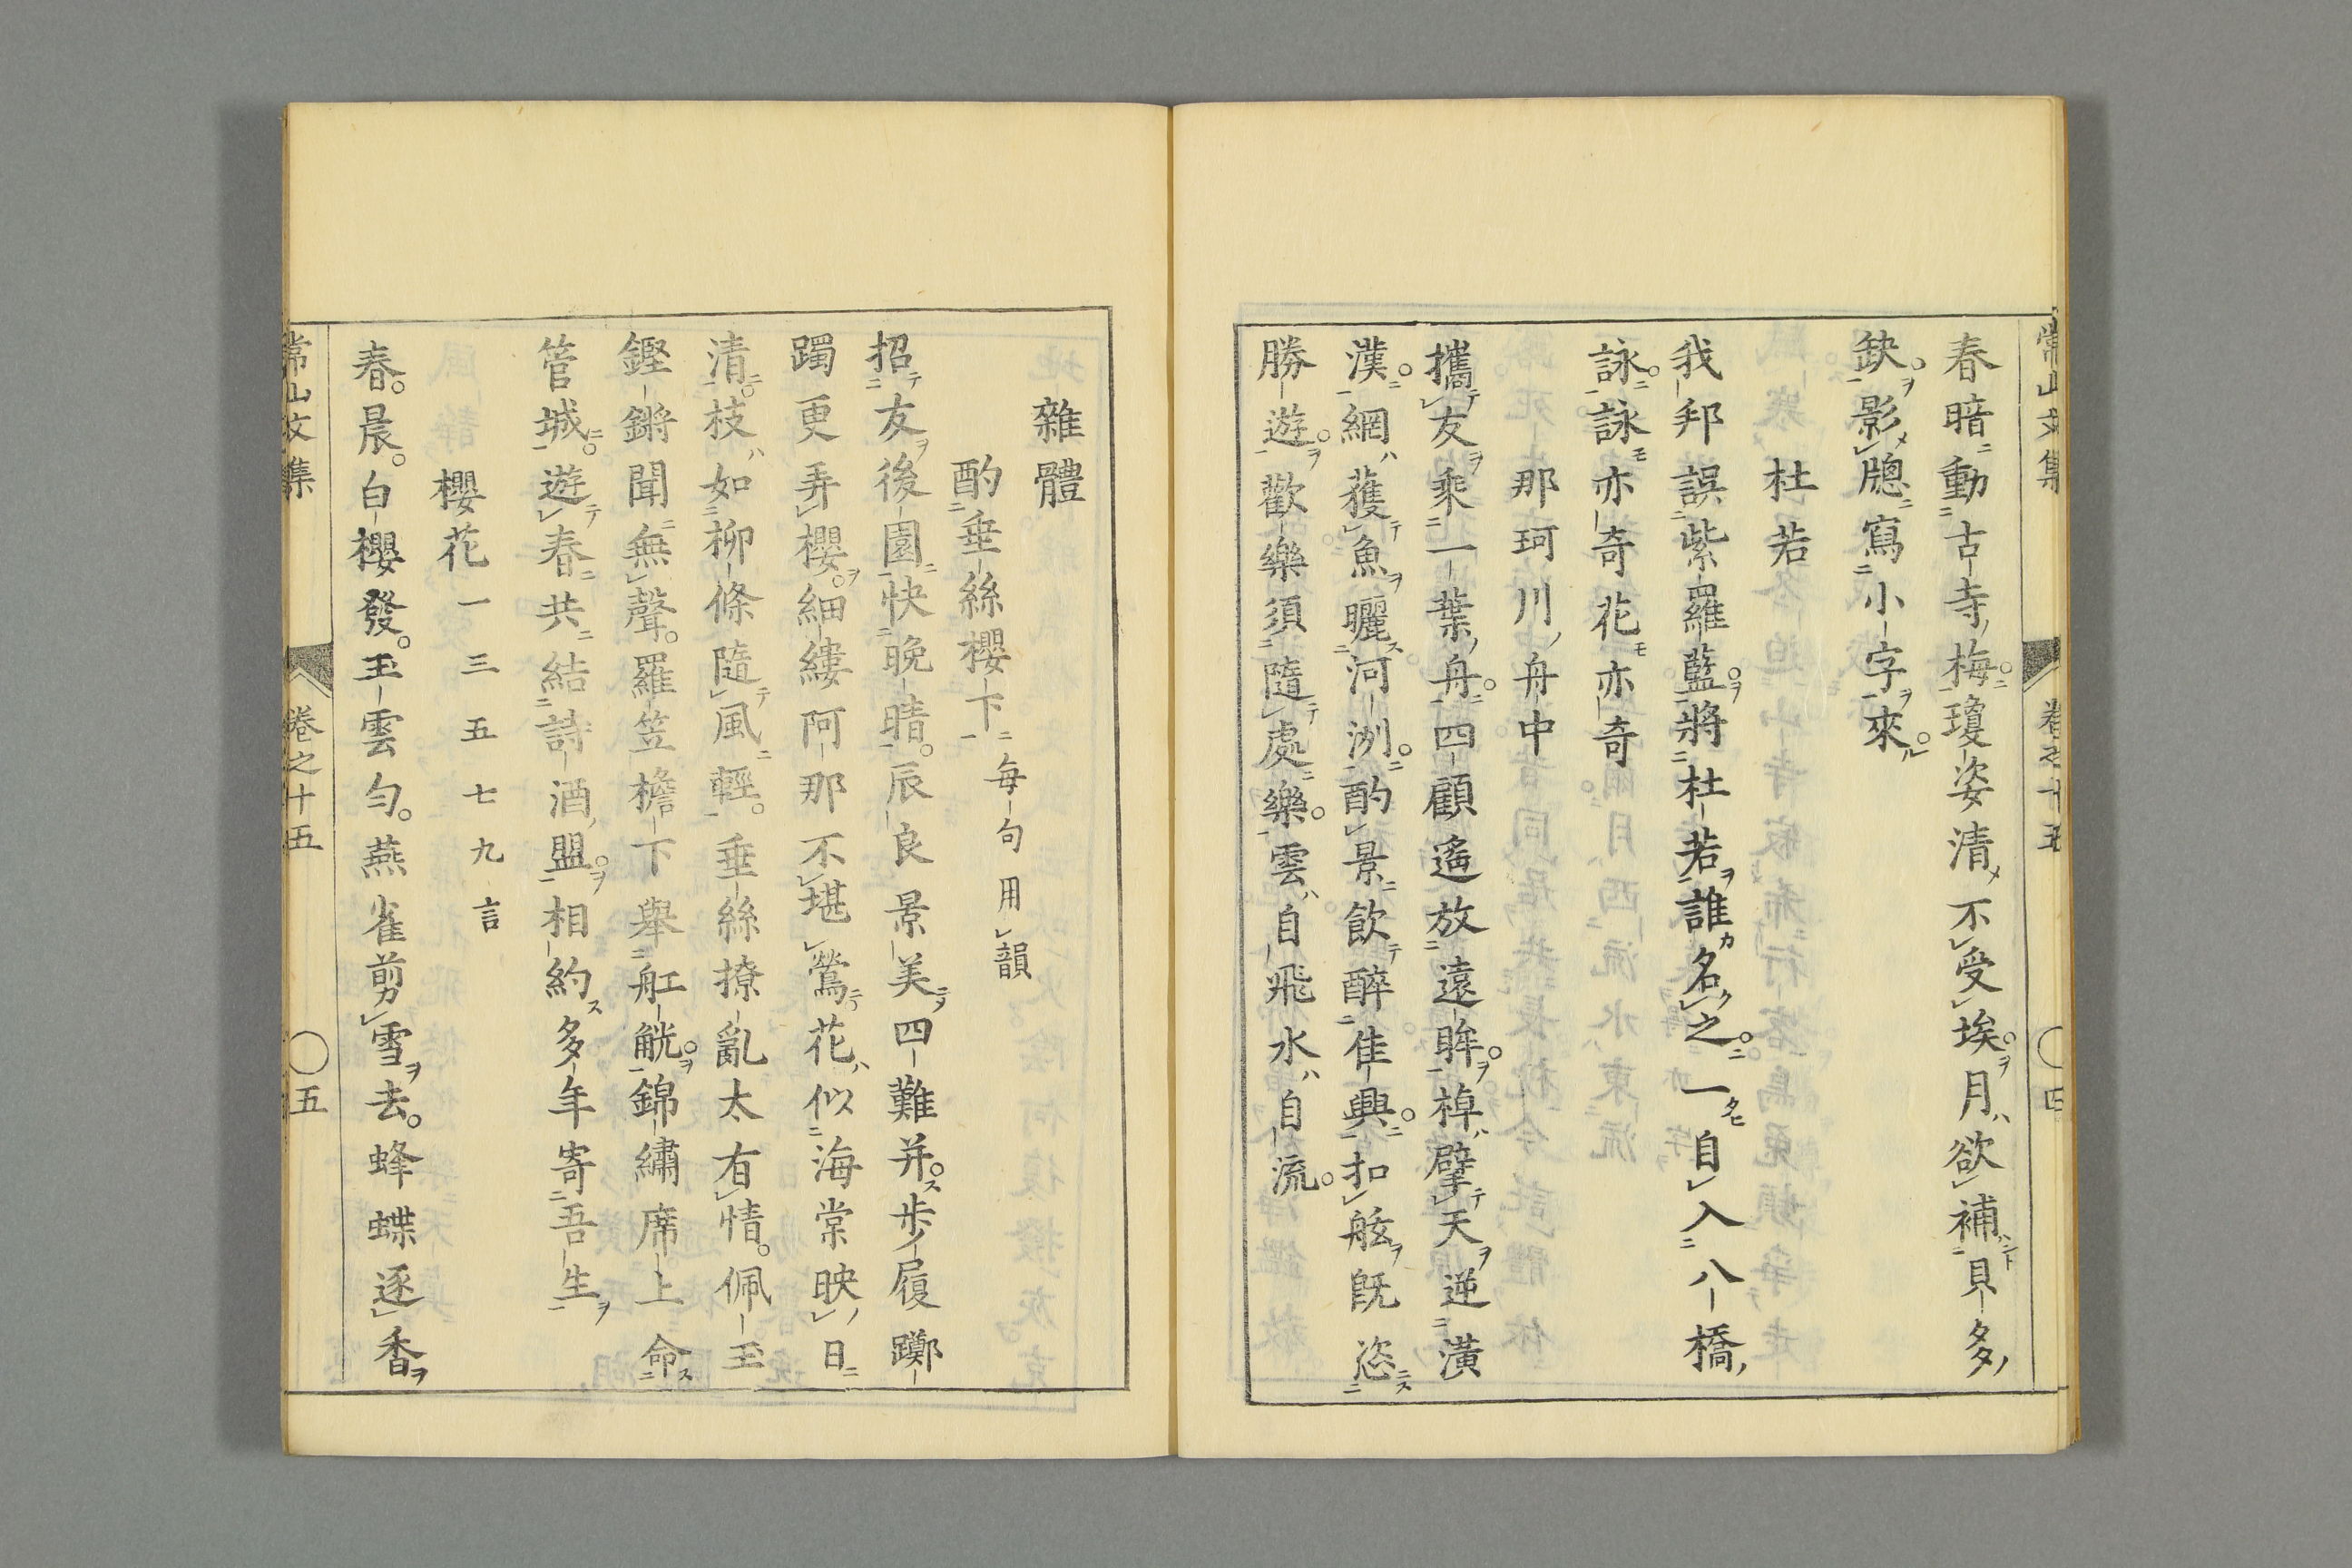 春暗動古寺梅瓊姿清不受埃月欲補貝多
缺影牕寫小字來
杜若
我邦誤紫羅藍將杜若誰名之一自入八橋
詠詠亦奇花亦奇
那珂川舟中
攜友乘一葉舟四顧遙放遠眸棹擘天逆潢
漢網獲魚曬河洲酌景飲醉佳興扣舷既恣
勝遊歡樂須隨處樂雲自飛水自流
雜體
酌垂絲櫻下每句用韻
招友後園快晚晴辰良景美四難并步履躑
躅更弄櫻細縷阿那不堪鶯花似海棠映日
清枝如柳條隨風輕垂絲撩亂太有情佩玉
鏗鏘聞無聲羅笠檐下舉舡觥錦繡席上命
管城遊春共結詩酒盟相約多年寄吾生
櫻花一三五七九言
春晨白櫻發玉雲勻燕雀剪雪去蜂蝶逐香
常山文集 卷之十五 〇五